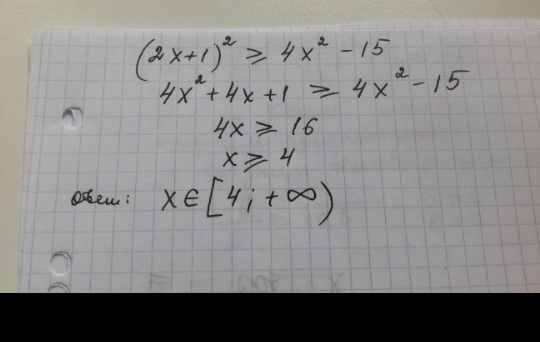 (2x+1)² ⩾ 4x² - 15
4x² + 4x + 1 ⩾ 4x² - 15
4x ⩾ 16
x ⩾ 4
Ответ: x ∈ [4; +∞)